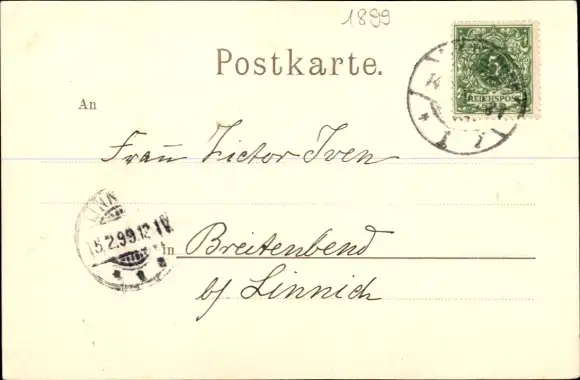 1899
Postkarte.
5
REICHSPOST
An
Frau Victor Iven
LINN
15.2.99.12-1N.
in Breitenbend
b/ Linnich